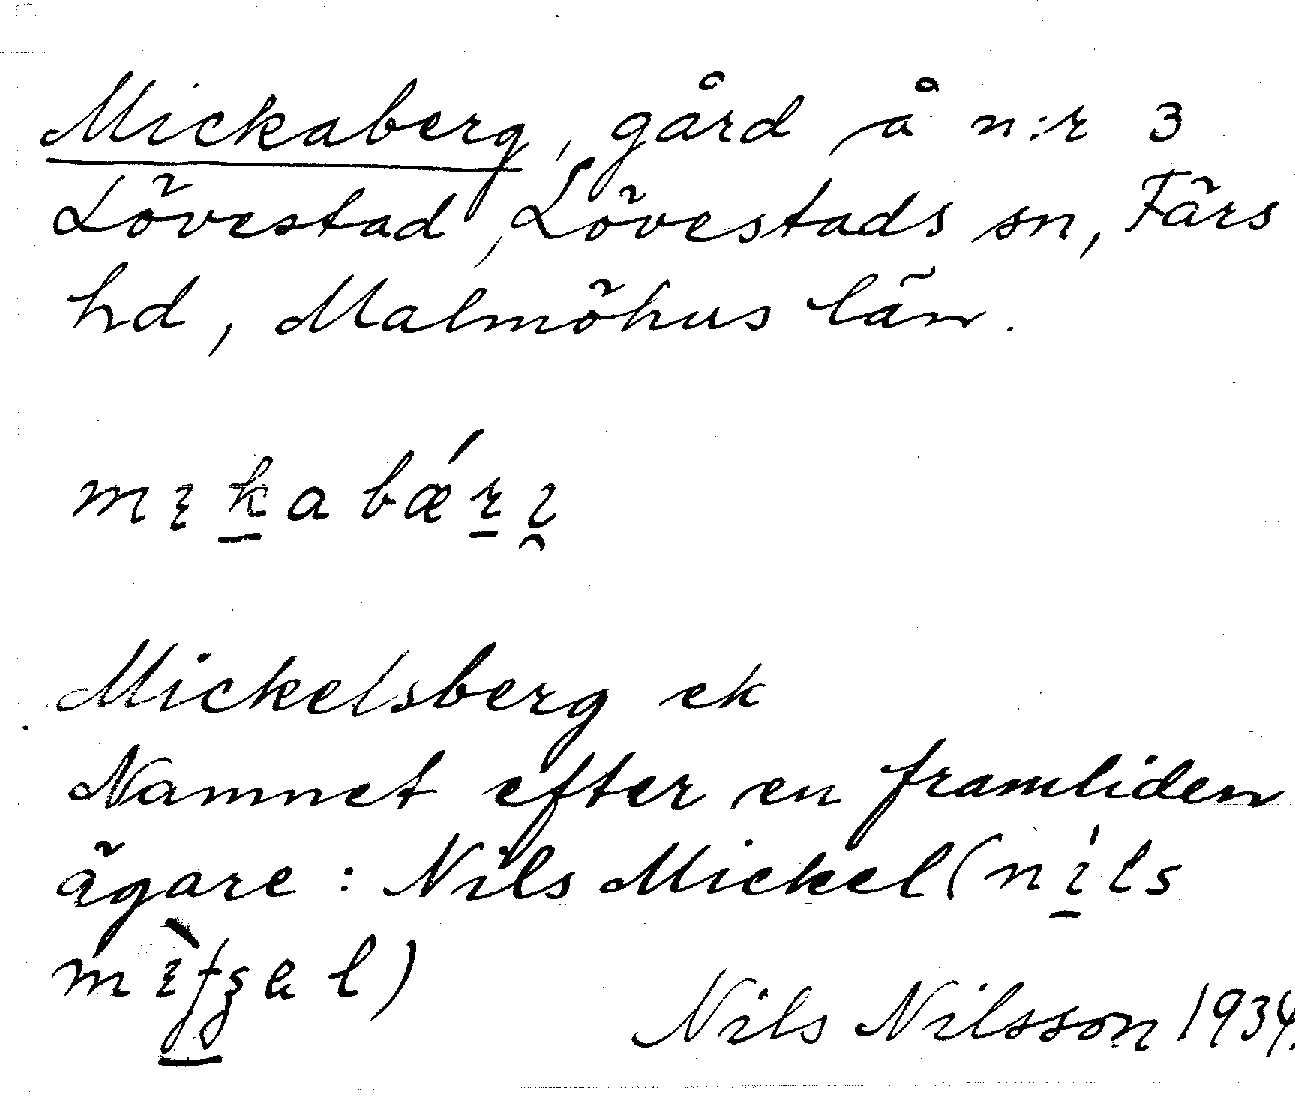 Mickaberg, gård å n:r 3
Lövestad, Lövestads sn, Färs
hd, Malmöhus län.
mıkabǽrı̯
Mickelsberg ek
Namnet efter en framliden
ägare: Nils Mickel (níls
Nils Nilsson 1934.